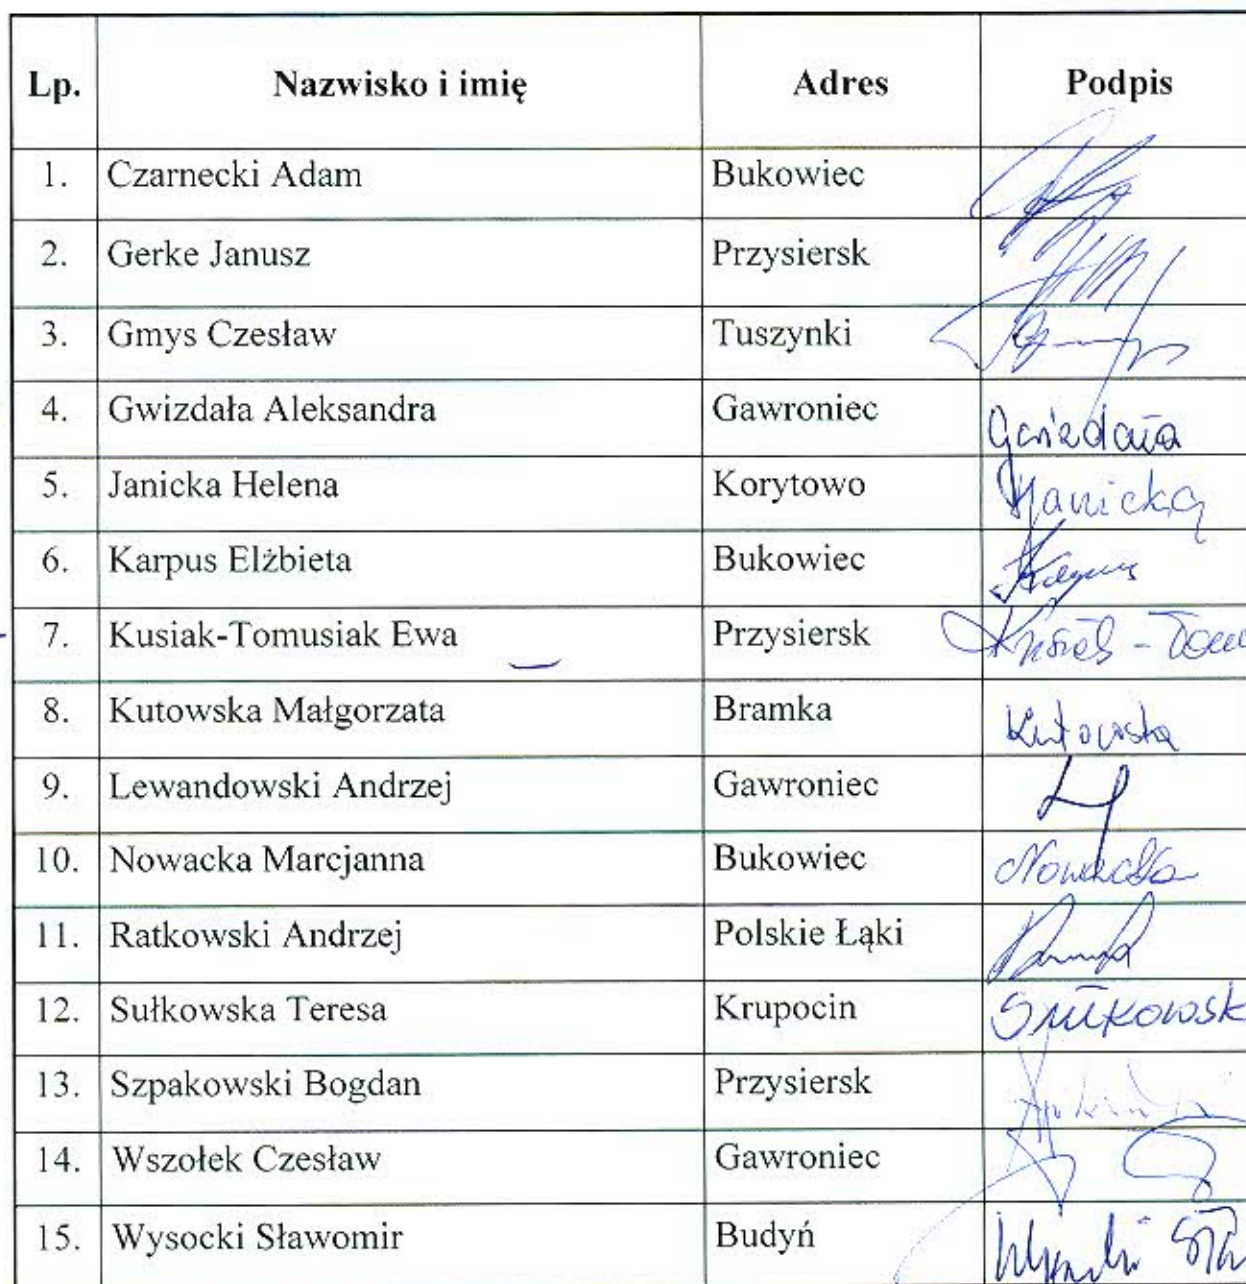 Lp. Nazwisko i imię Adres Podpis
1. Czarnecki Adam Bukowiec
2. Gerke Janusz Przysiersk
3. Gmys Czesław Tuszynki
4. Gwizdała Aleksandra Gawroniec Gwizdała
5. Janicka Helena Korytowo HJanicka
6. Karpus Elżbieta Bukowiec Karpus
7. Kusiak-Tomusiak Ewa Przysiersk
8. Kutowska Małgorzata Bramka Kutowska
9. Lewandowski Andrzej Gawroniec
10. Nowacka Marcjanna Bukowiec Nowacka
11. Ratkowski Andrzej Polskie Łąki
12. Sułkowska Teresa Krupocin Sułkowsk
13. Szpakowski Bogdan Przysiersk
14. Wszołek Czesław Gawroniec
15. Wysocki Sławomir Budyń